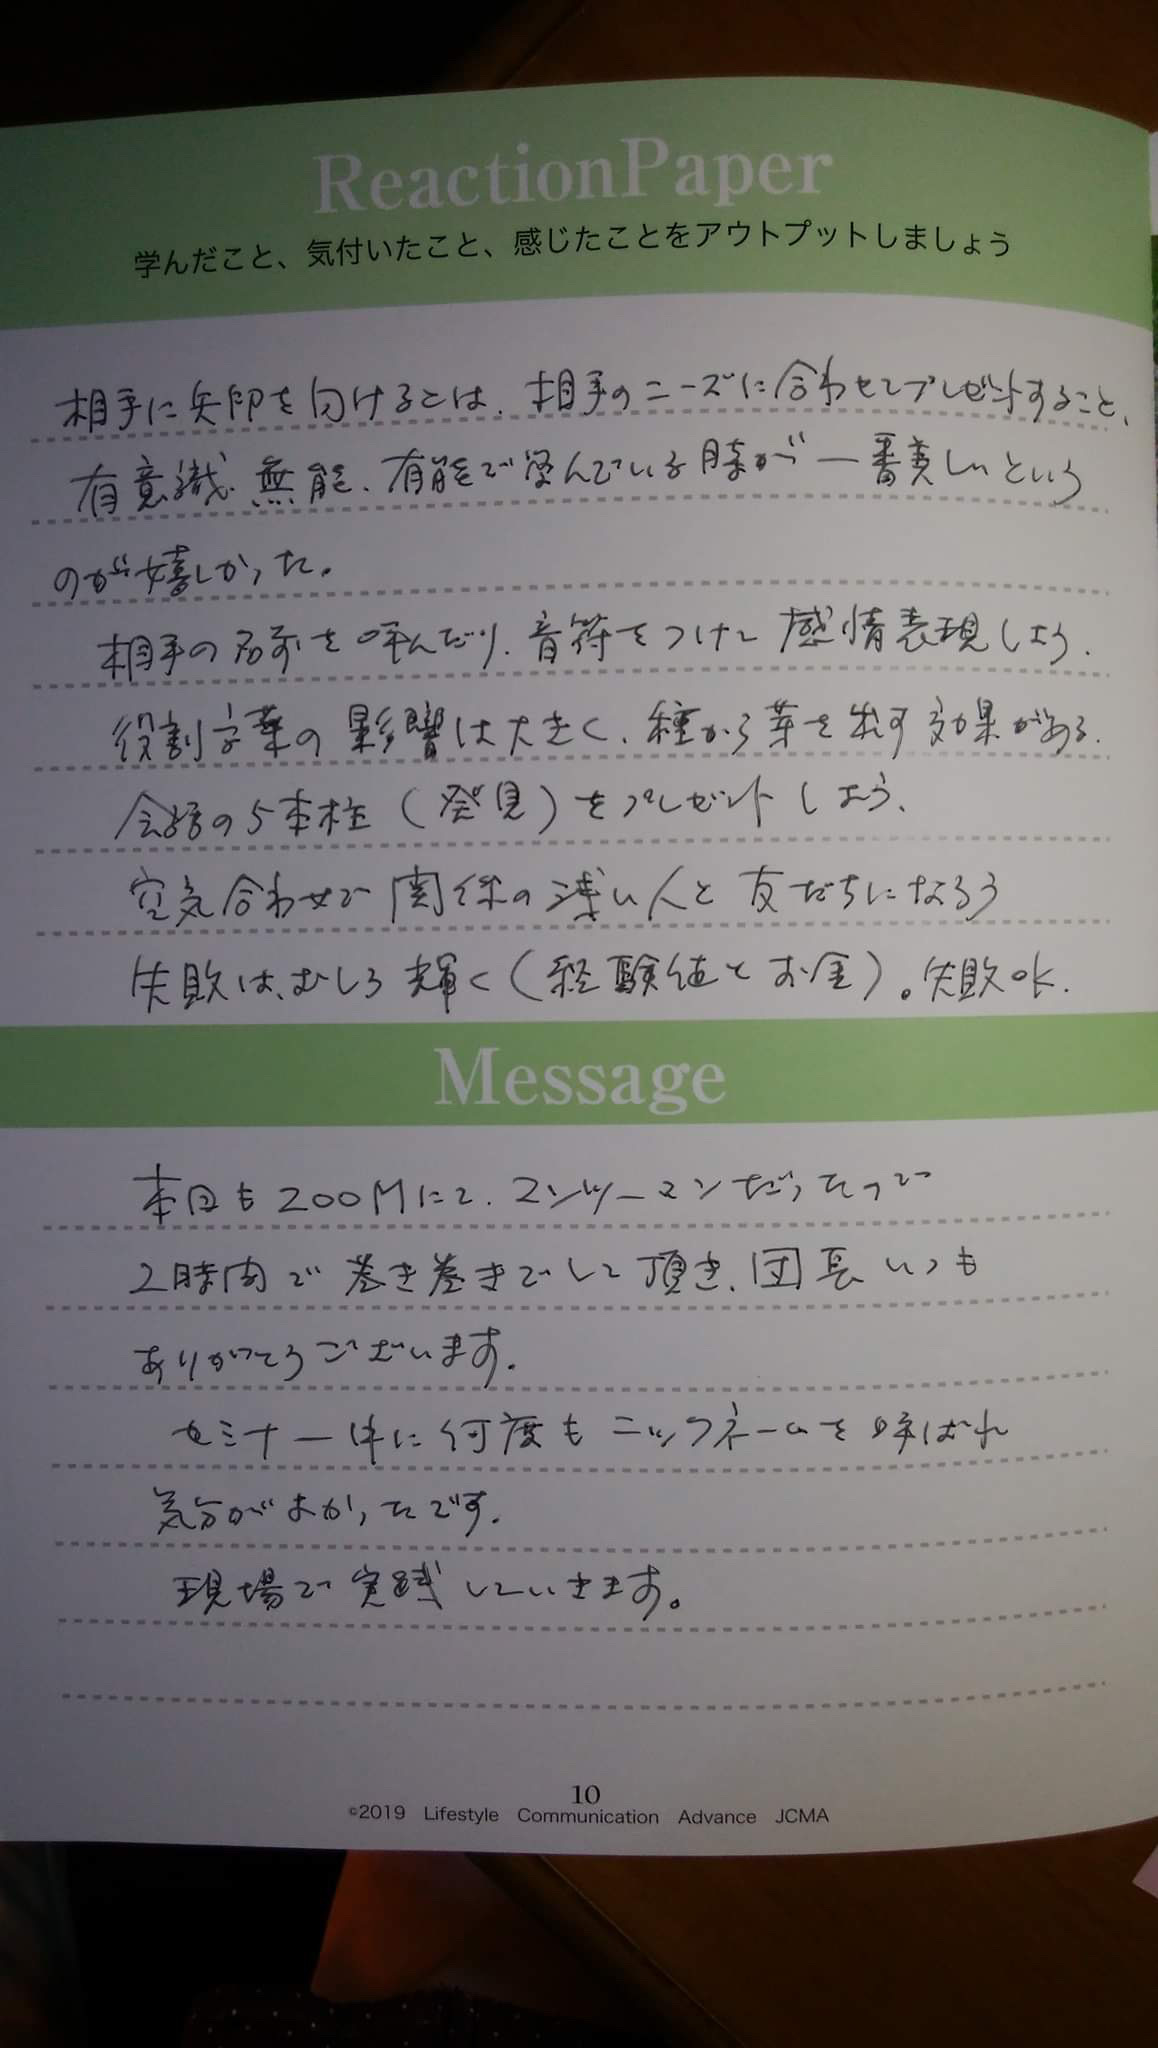 ReactionPaper
学んだこと、気付いたこと、感じたことをアウトプットしましょう
相手に矢印を向けるとは、相手のニーズに合わせてプレゼントすること、
有意識、無能、有能で学んでいる時が一番美しいという
のが嬉しかった。
相手の名前を呼んだり、音符をつけて感情表現しよう、
役割言葉の影響は大きく、種から芽を出す効果がある、
会話の5本柱(発見)をプレゼントしよう、
空気合わせで関係の浅い人と友だちになろう
失敗は、むしろ輝く(経験値とお金)。失敗OK.
Message
本日も200Mにて、マンツーマンだったので
2時間で巻き巻きでして頂き、団長いつも
ありがとうございます。
セミナー中に何度もニックネームを呼ばれ
気分がよかったです。
現場で実践していきます。
10
©2019 Lifestyle Communication Advance JCMA